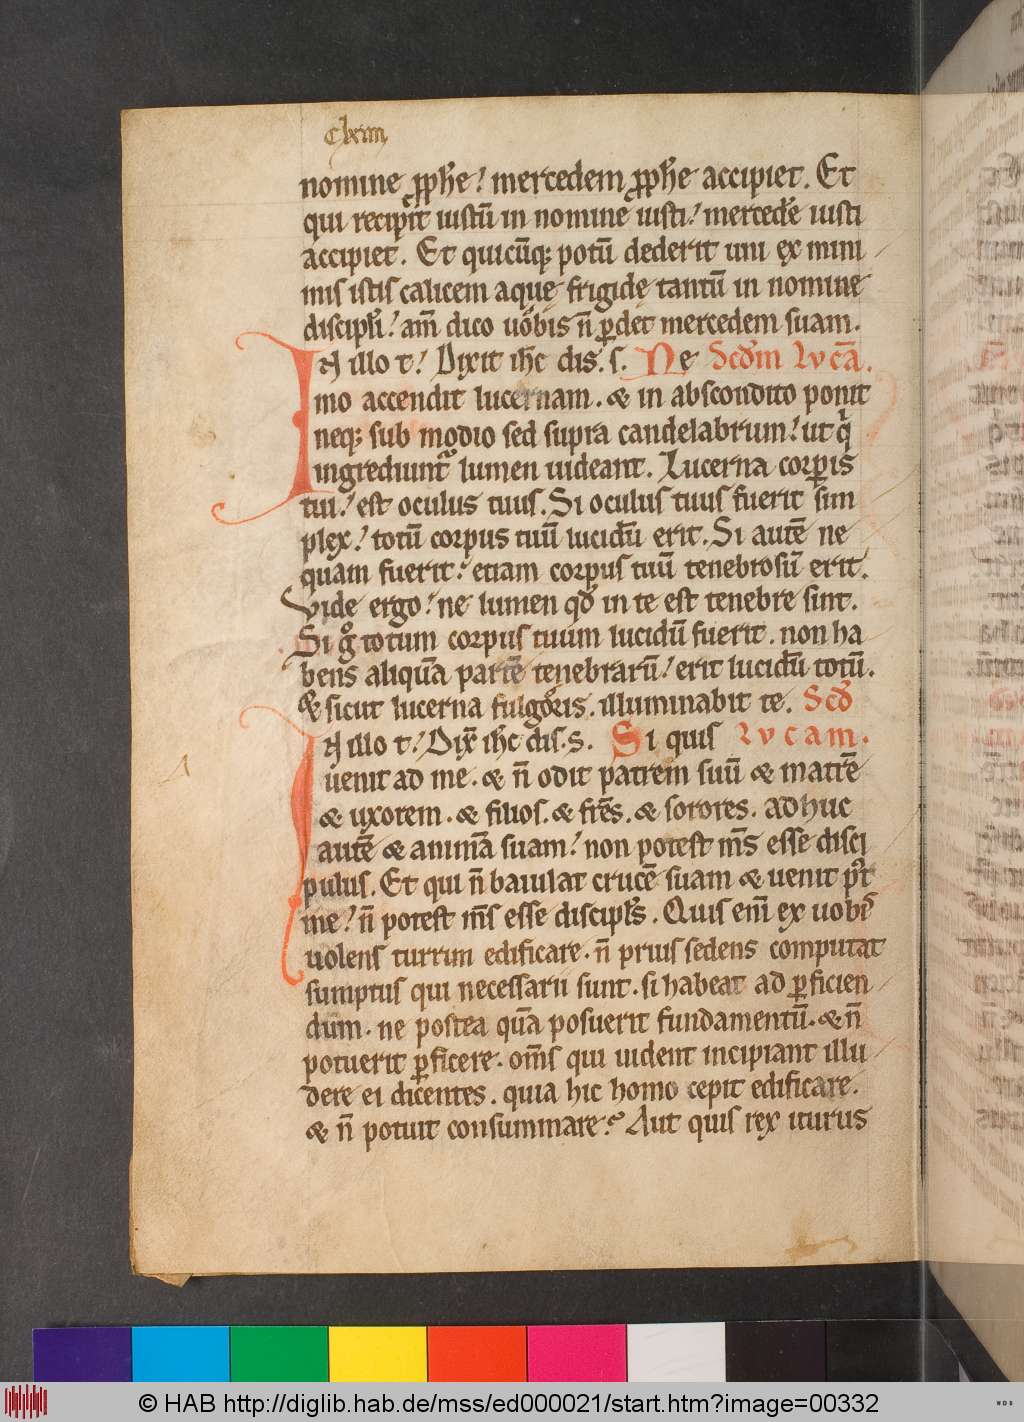 clxiiii
nomine ꝓph̄e. mercedem ꝓph̄e accipiet. Et
qui recipit iustū in nomine iusti. mercedē iusti
accipiet. Et quicūqꝫ potū dederit uni ex mini
mis istis calicem aque frigide tantū in nomine
discipl̄i. am̄ dico uobis n̄ ꝑdet mercedem suam.
In illo t. Dixit ih̄c dis. s. Ne Scd̄m Lvcā.
mo accendit lucernam. & in abscondito ponit
neqꝫ sub modio sed supra candelabrum. ut qͥ
ingrediunt lumen uideant. Lucerna corꝑis
tui. est oculus tuus. Si oculus tuus fuerit sim
plex. totū corpus tuū lucidū erit. Si autē ne
quam fuerit. etiam corpus tuū tenebrosū erit.
Vide ergo. ne lumen qd̄ in te est tenebre sint.
Si gͦ totum corpus tuum lucidū fuerit. non ha
bens aliquā partē tenebrarū. erit lucidū totū.
& sicut lucerna fulgoris. illuminabit te. Scd̄
In illo t. Dix̄ ih̄c dis. s. Si quis Lvcam.
uenit ad me. & n̄ odit patrem suū & matrē
& uxorem. & filios. & fr̄es. & sorores. adhuc
autē & animā suam. non potest m̄s esse disci
pulus. Et qui n̄ baiulat crucē suam & uenit pͦt
me. n̄ potest m̄s esse discipl̄s. Quis enī ex uobis
uolens turrim edificare. n̄ prius sedens computat
sumptus qui necessarii sunt. si habeat ad ꝑficien
dum. ne postea quā posuerit fundamentū. & n̄
potuerit ꝑficere. om̄s qui uident incipiant illu
dere ei dicentes. quia hic homo cepit edificare.
& n̄ potuit consummare. Aut quis rex iturus
© HAB http://diglib.hab.de/mss/ed000021/start.htm?image=00332